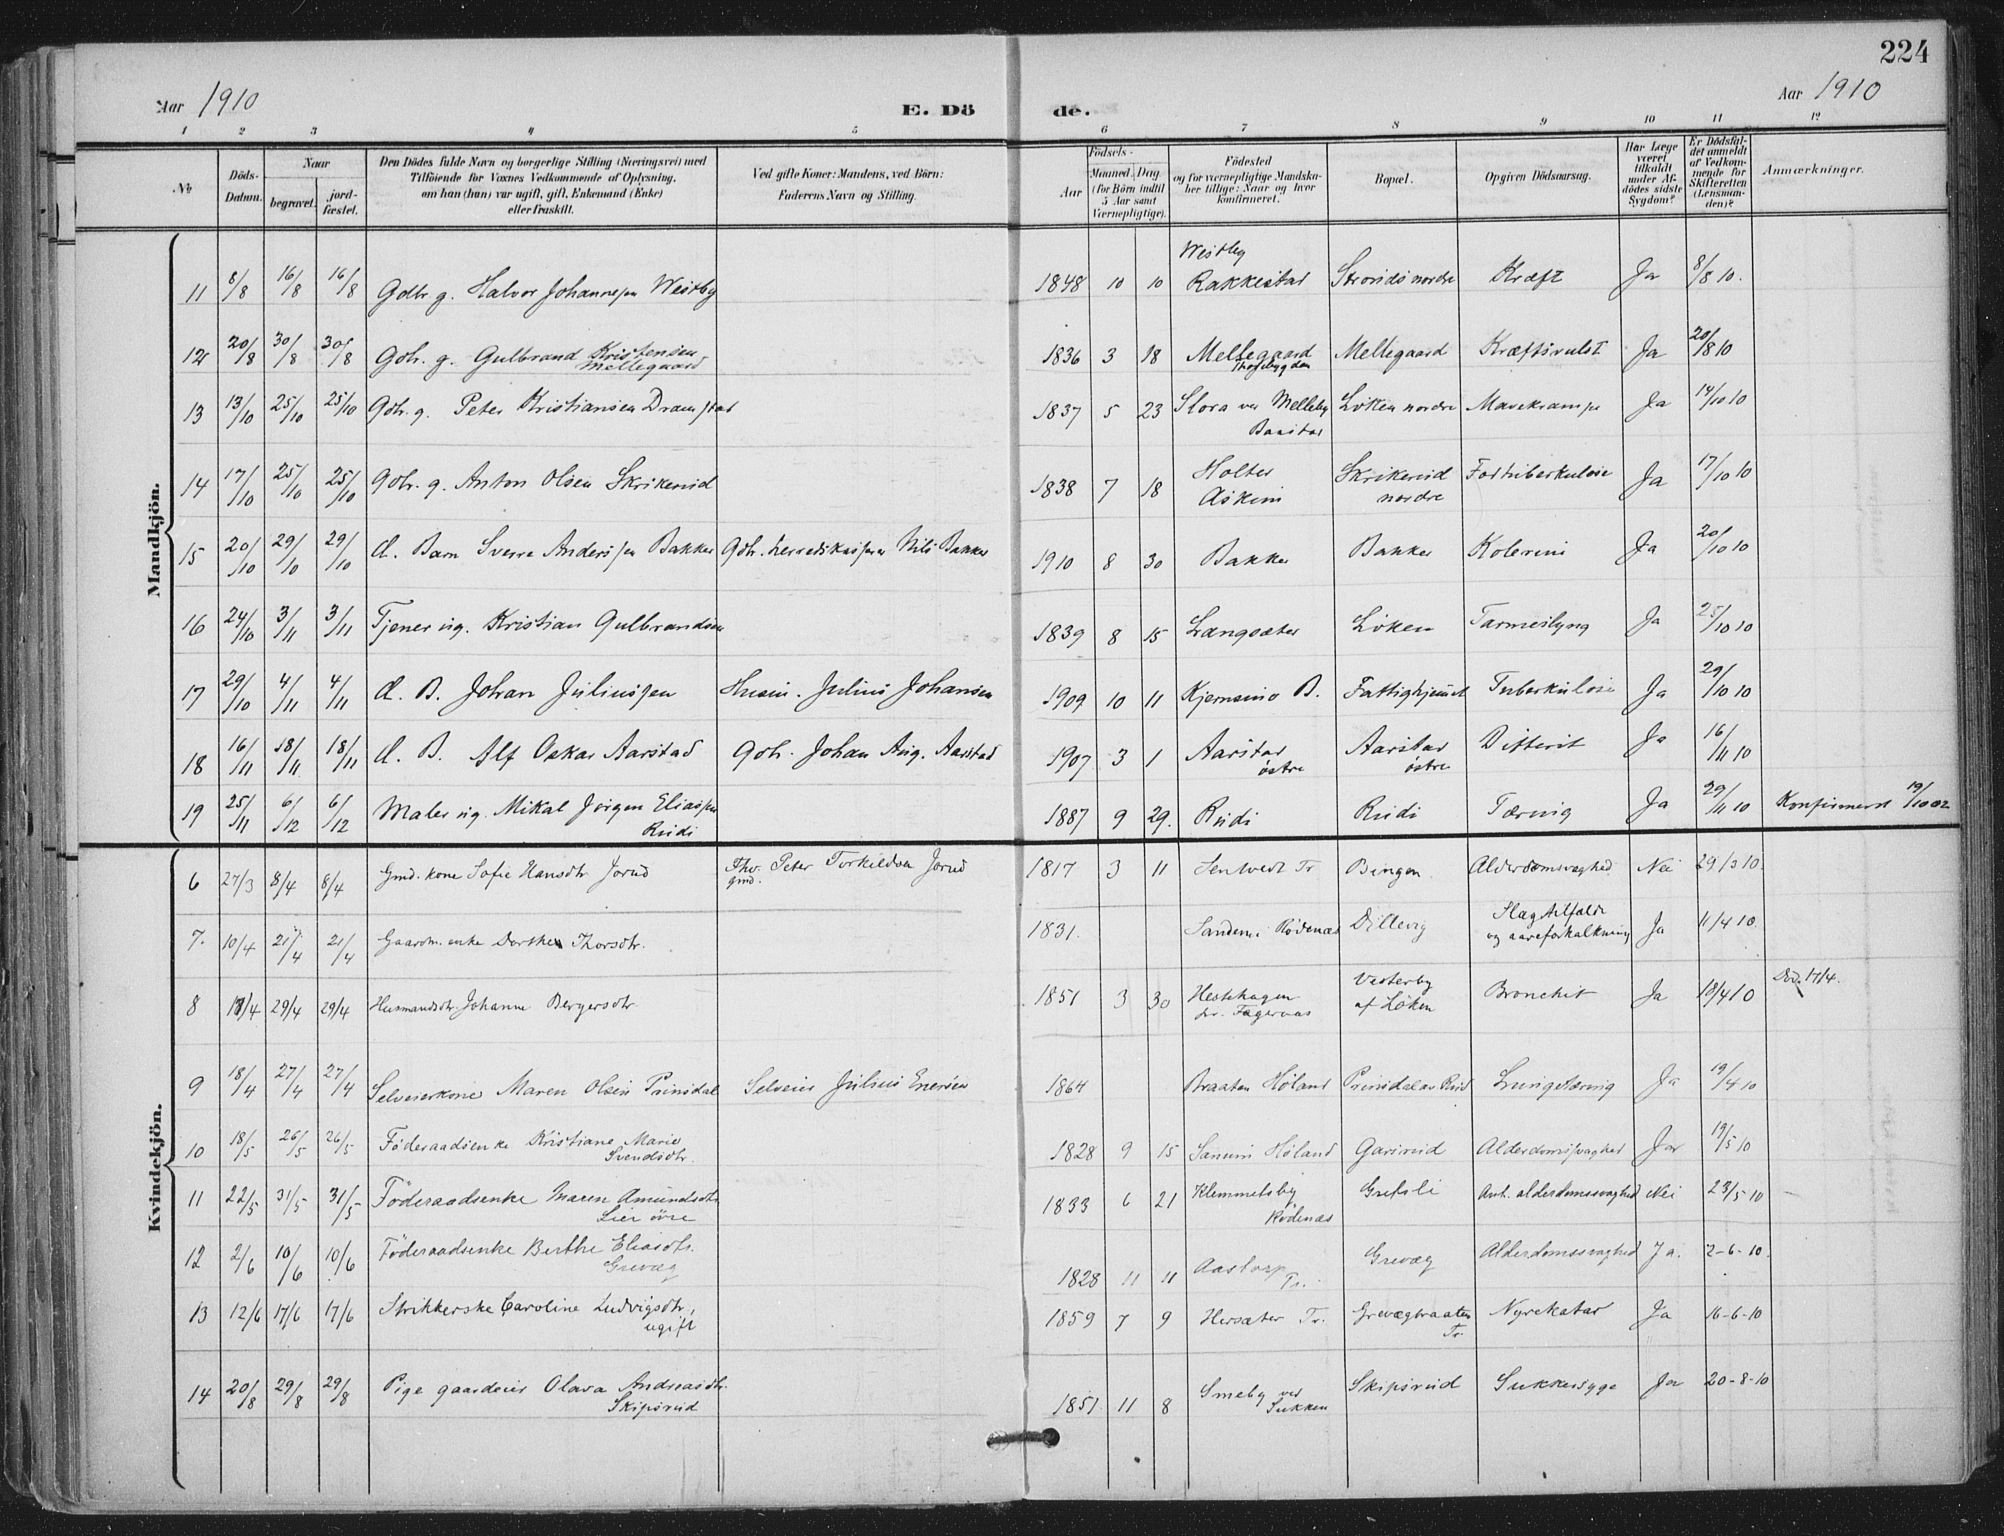 224
Aar 1910
E. Dö
de.
Aar 1910
1 2 3 4 5 6 7 8 9 10 11 12
No
Döds-Datum.
Naar
begravet.
jord-fæstet.
Den Dödes fulde Navn og borgerlige Stilling (Næringsvei) med
Tilföiende for Voxnes Vedkommende af Oplysning,
om han (hun) var ugift, gift, Enkemand (Enke)
eller fraskilt.
Ved gifte Koner: Mandens, ved Börn:
Faderens Navn og Stilling.
Födsels-
Aar
Maaned. Dag.
(for Börn indtil
5 Aar samt
Værnepligtige).
Födested
og for værnepligtige Mandska-
ber tillige: Naar og hvor
konfirmeret.
Bopæl.
Opgiven Dödsaarsag.
Har Læge
været
tilkaldt
under Af-
dödes sidste
Sygdom?
Er Dödsfal-
det anmeldt
af Vedkom-
mende for
Skifteretten
(Lensman-
den)?
Anmærkninger.
Mandkjön.
11 8/8 16/8 16/8 Gdbr. g. Halvor Johannessen Westby 1848 10 10 Westby Rakkestad nordre Kræft Ja 8/8 10.
12 20/8 30/8 30/8 Gbr. g. Gulbrand Kristensen Mellegaard 1836 3 18 Mellegaard Mellegaard Kræftsvulst Ja 20/8 10
13 13/10 25/10 25/10 Gbr. g. Peter Kristiansen Dramstad 1837 5 23 Slora ved Melleby Baastad Løken nordre Mavekrampe Ja 14/10 10
14 17/10 25/10 25/10 Gbr. g. Anton Olsen Skrikerud 1838 7 18 Holter Askim Skrikerud nordre Ja 17/10 10
15 20/10 29/10 29/10 d. Barn Sverre Anderssen Bakker Gbr. herredskasserer Nils Bakker 1910 8 30 Bakker Bakker Kolerini Ja 20/10 10
16 24/10 3/11 3/11 Tjener ug. Kristian Gulbrandsen 1839 8 15 Langsæter Løken Tarmeslyng Ja 25/10 10
17 29/10 4/11 4/11 d. B. Johan Juliussen Husm. Julius Johansen 1909 10 11 B. Fattighjemmet Tuberkulose Ja 29/10 10
18 16/11 18/11 18/11 d. B. Alf Oskar Aarstad Gbr. Johan Aug. Aarstad 1907 3 1 Aarstad østre Aarstad østre Difterit Ja 16/11 10
19 25/11 6/12 6/12 Maler ug. Mikal Jørgen Eliassen Rudi 1887 9 29. Rudi Rudi Tæring Ja 29/11 10 Konfirmered 19/10 02
Kvindekjön.
6 27/3 8/4 8/4 Gmd. kone Sofie Hansdtr Jorud Fhv. gmd. Peter Torkildsen Jorud 1817 3 11 Tr Bingen Alderdomsvaghed Nei 29/3 10.
7. 10/4 21/4 21/4 Gaardm. enke Dorthea Thorsdtr. 1831. Rødenæs Dillevig Slagtilfælde og aareforkalkning Ja 11/4 10.
8 29/4 29/4 Husmandsdtr. Johanne Bergersdtr 1851 3 30 Hestehagen Fagernæs Vesterby af Løken Bronchit Ja 18/4 10 Død 17/4.
9 18/4 27/4 27/4 Selveierkone Maren Olsen Prinsdal Selveier Julius Enersen 1864 Braaten Høland Prinsdal av Rud Lungetæring Ja 19/4 10
10 18/5 26/5 26/5 Føderaadsenke Kristiane Marie Svendsdtr. 1828 9 15 Høland Alderdomssvaghed Ja 19/5 10
11 22/5 31/5 31/5 Föderaadsenke Maren Amundsdtr Lier övre 1833 6 21 Klemmetsby Rödenæs Grefsli Ant. alderdomssvaghed Nei 23/5 10
12 2/6 10/6 10/6 Föderaadsenke Berthe Eliasdtr. Grevæg 1828 11 11 Aastorp Tr. Grevæg Alderdomssvaghed Ja. 2-6-10.
13 12/6 17/6 17/6 Strikkerske Caroline Ludvigsdtr, ugift 1859 7 9 Hersæter Tr. Grevægbraaten Tr. Nyrekatar Ja 16-6-10
14 20/8 29/8 29/8 Pige gaardeier Olava Andreasdtr. Skipsrud 1851 11 8 Smeby ved Sukken Skipsrud Sukkersyge Ja 20-8-10